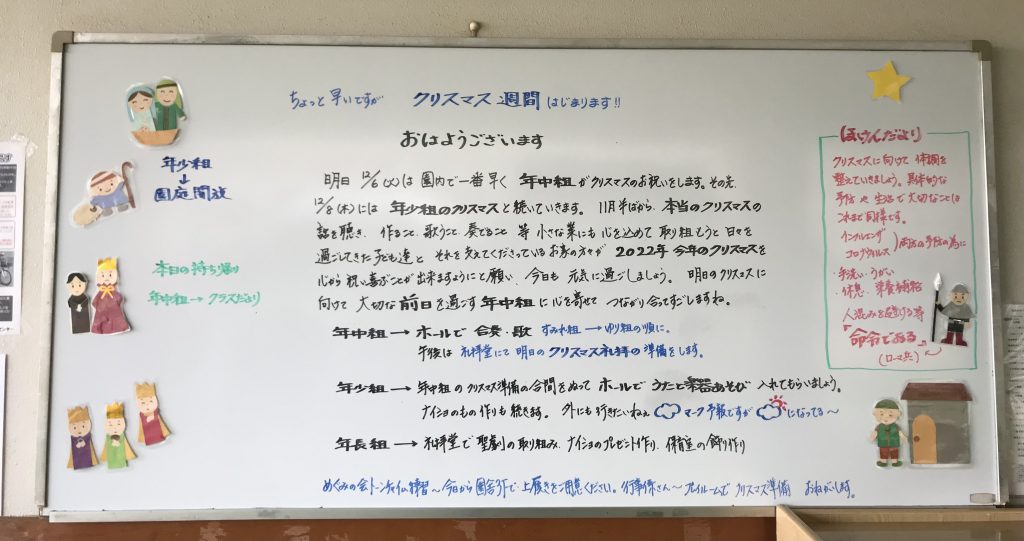 ちょっと早いですが クリスマス週間 はじまります!!
おはようございます
年少組
↓
園庭開放
本日の持ち帰り
年中組→クラスだより
明日 12/6(火)は 園内で一番早く 年中組がクリスマスのお祝いをします。その先
12/8(木)には 年少組のクリスマスと続いていきます。 11月半ばから、本当のクリスマスの
話を聴き、作ること、歌うこと、奏でること 等 小さな業にも心を込めて取り組もうと日々を
過ごしてきた子ども達と それを支えてくださっているお家の方々が 2022年 今年のクリスマスを
心から祝い喜ぶことが出来ますようにと願い、今日も元気に過ごしましょう。 明日のクリスマスに
向けて 大切な前日を過ごす年中組に心を寄せて つながり合ってすごしますね。
年中組→ホールで 合奏・歌 すみれ組→ゆり組の順に。
午後は 礼拝堂にて 明日のクリスマス礼拝の準備をします。
年少組→年中組のクリスマス準備の合間をぬって ホールで うたと楽器あそび 入れてもらいましょう。
ナイショのもの作りも続きます。 外にも行きたいねぇ マーク予報ですが になってる～
年長組→礼拝堂で 聖劇の取り組み、ナイショのプレゼント作り、保育室の飾り作り
めぐみの会トーンチャイム練習～今日から園舎3Fで、上履きをご用意ください。行事係さん～プレイルームでクリスマス準備 おねがいします。
ほけんだより
クリスマスに向けて 体調を
整えていきましょう。具体的な
予防や生活で大切なことは
これまで同様です。
インフルエンザ
コロナウィルス
両方の予防の為に
・手洗い・うがい
・休息・栄養補給
人混みを避ける等
『命令である』
(ローマ兵)